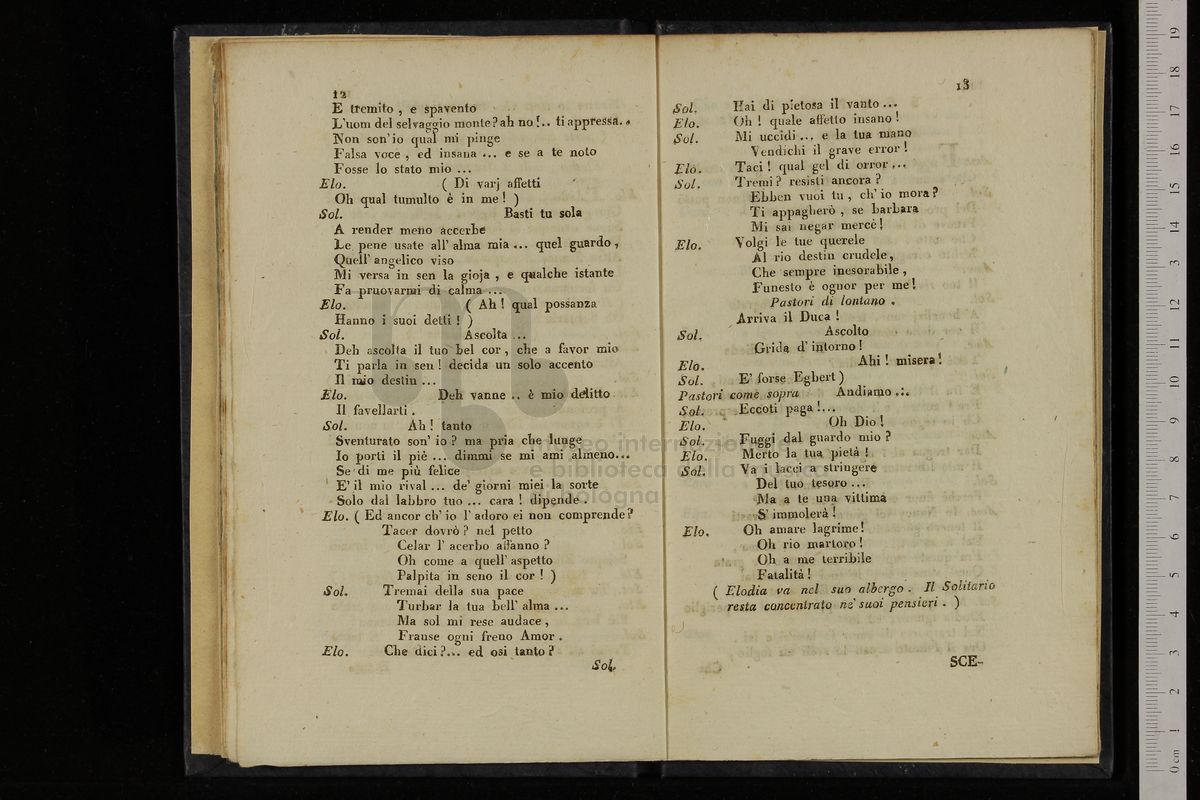 12
E tremito , e spavento
L'uom del selvaggio monte? ah no !.. ti appressa..
Non son' io qual mi pinge
Falsa voce , ed insana ... e se a te noto
Fosse lo stato mio ...
Elo. ( Di varj affetti
Oh qual tumulto è in me ! )
Sol. Basti tu sola
A render meno accerbe
Le pene usate all' alma mia ... quel guardo ,
Quell' angelico viso
Mi versa in sen la gioja , e qualche istante
Fa pruovarmi di calma ...
Elo. ( Ah ! qual possanza
Hanno i suoi detti ! )
Sol. Ascolta ...
Deh ascolta il tuo bel cor , che a favor mio
Ti parla in sen ! decida un solo accento
Il mio destin ...
Elo. Deh vanne .. è mio delitto
Il favellarti .
Sol. Ah ! tanto
Sventurato son' io ? ma pria che lunge
Io porti il piè ... dimmi se mi ami almeno...
Se di me più felice
E' il mio rival ... de' giorni miei la sorte
Solo dal labbro tuo ... cara ! dipende .
Elo. ( Ed ancor ch' io l' adoro ei non comprende?
Tacer dovrò ? nel petto
Celar l' acerbo affanno ?
Oh come a quell' aspetto
Palpita in seno il cor ! )
Sol. Tremai della sua pace
Turbar la tua bell' alma ...
Ma sol mi rese audace ,
Franse ogni freno Amor .
Elo. Che dici ?... ed osi tanto ?
Sol.
13
Sol. Hai di pietosa il vanto ...
Elo. Oh ! quale affetto insano !
Sol. Mi uccidi ... e la tua mano
Vendichi il grave error !
Elo. Taci ! qual gel di orror ...
Sol. Tremi ? resisti ancora ?
Ebben vuoi tu , ch' io mora ?
Ti appagherò , se barbara
Mi sai negar mercè !
Elo. Volgi le tue querele
Al rio destin crudele ,
Che sempre inesorabile ,
Funesto è ognor per me !
Pastori di lontano .
Arriva il Duca !
Sol. Ascolto
Grida d' intorno !
Elo. Ahi ! misera !
Sol. E' forse Egbert )
Pastori come sopra Andiamo ...
Sol. Eccoti paga !...
Elo. Oh Dio !
Sol. Fuggi dal guardo mio ?
Elo. Merto la tua pietà !
Sol. Va i lacci a stringere
Del tuo tesoro ...
Ma a te una vittima
S' immolerà !
Elo. Oh amare lagrime !
Oh rio martoro !
Oh a me terribile
Fatalità !
( Elodia va nel suo albergo . Il Solitario
resta concentrato ne' suoi pensieri . )
SCE-
museo internazionale
e biblioteca della musica
bologna
0 cm 1 2 3 4 5 6 7 8 9 10 11 12 13 14 15 16 17 18 19